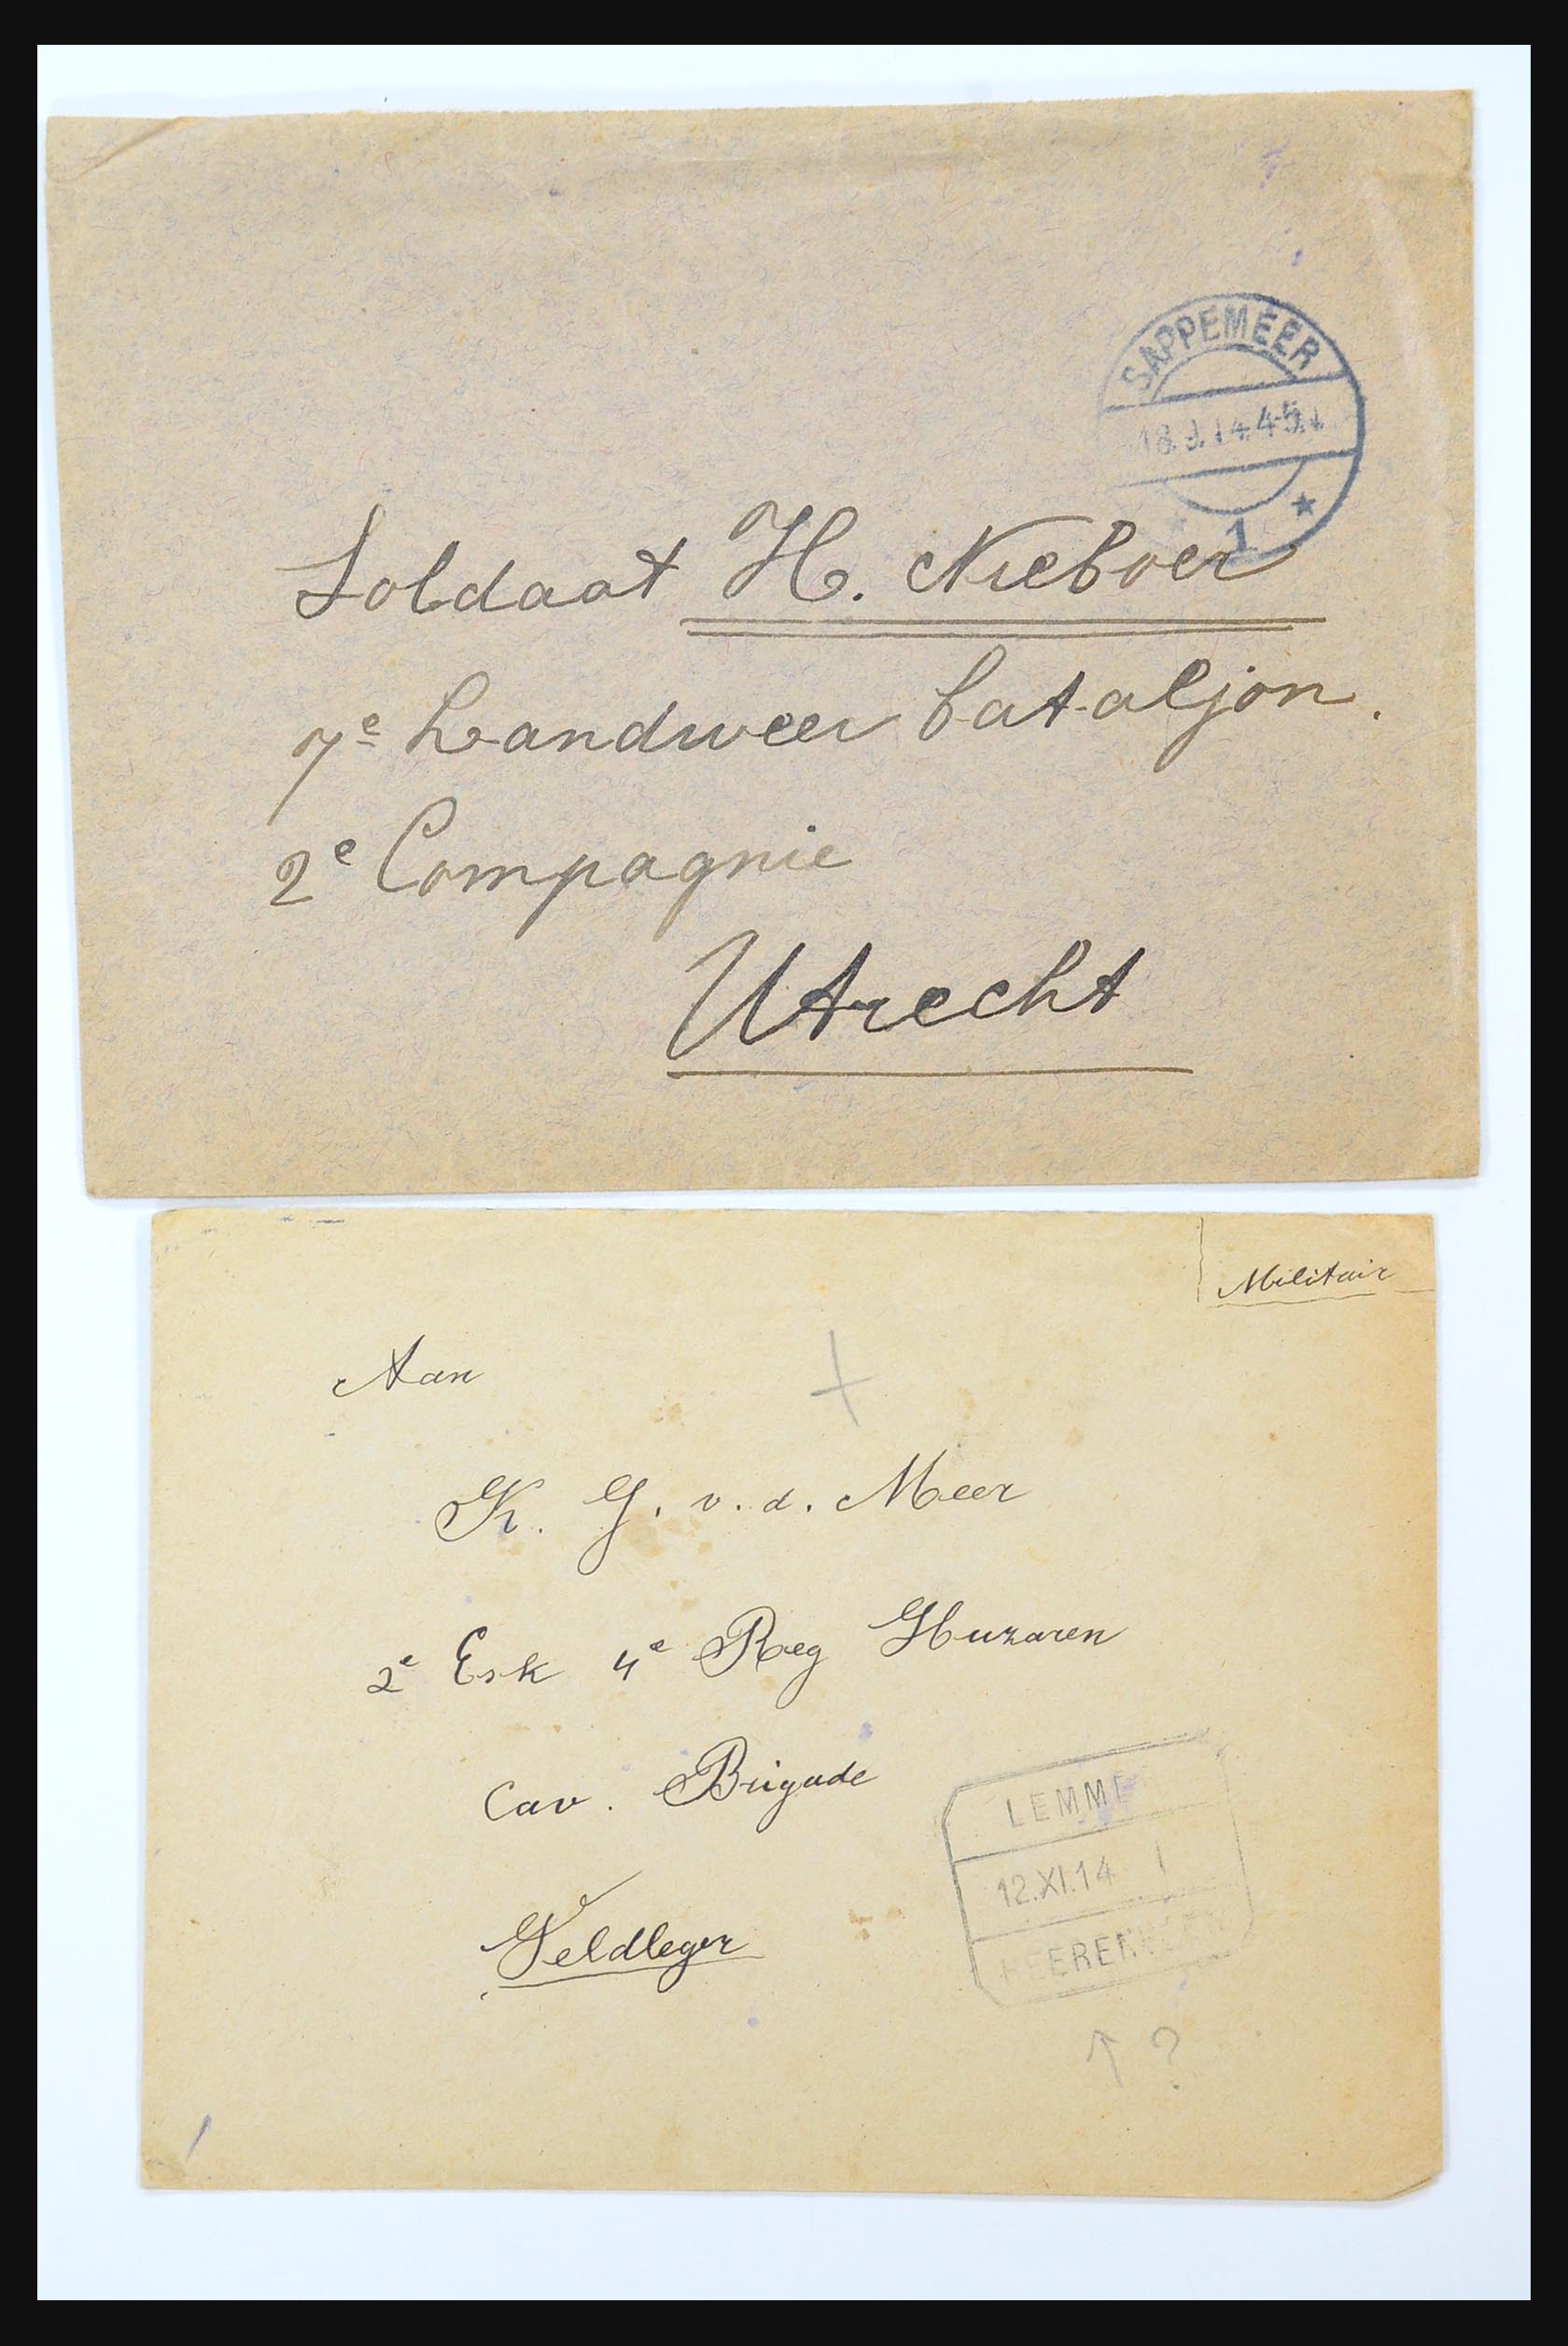 SAPPEMEER
4-5
1
Soldaat H. Nieboer
7e Landweer bataljon.
2e Compagnie
Utrecht
Militair
Aan
K. G. v. d. Meer
2e Esk 4e Reg Huzaren
Cav. Brigade
Veldleger
LEMME
12.XI.14 I
↑ ?